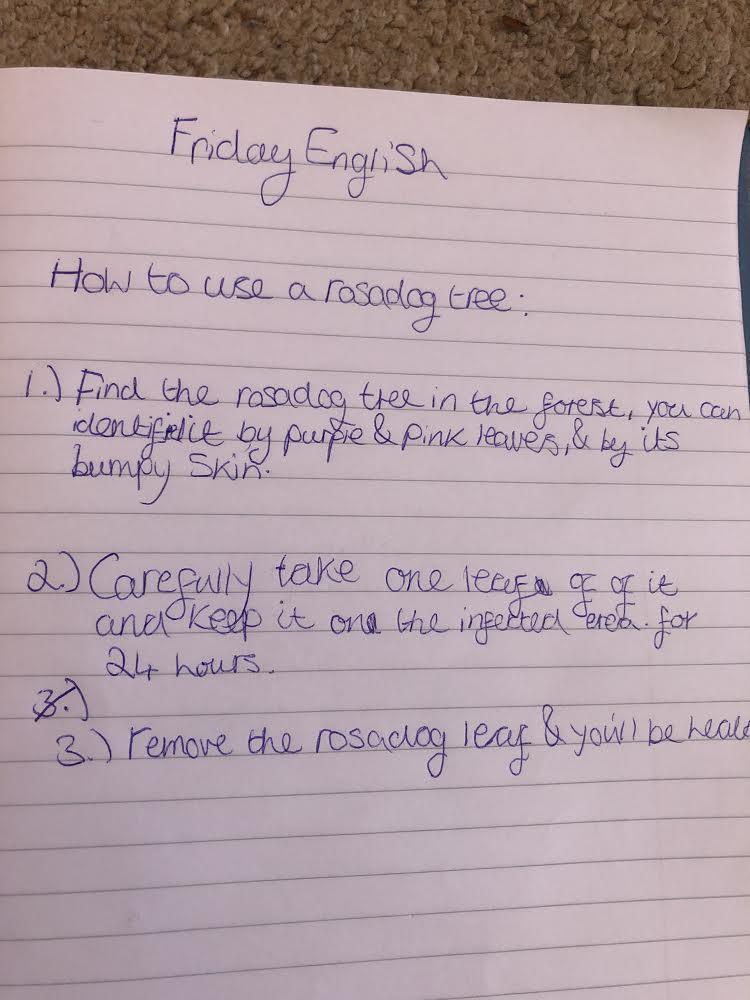 Friday English
How to use a rosadog tree:
1.) Find the rosadog tree in the forest, you can
it by purple & pink leaves, & by its
bumpy skin.
2.) Carefully take one leaf of of it
and keep it on the infected erea. for
24 hours.
3.)
3.) remove the rosadog leaf & you'll be